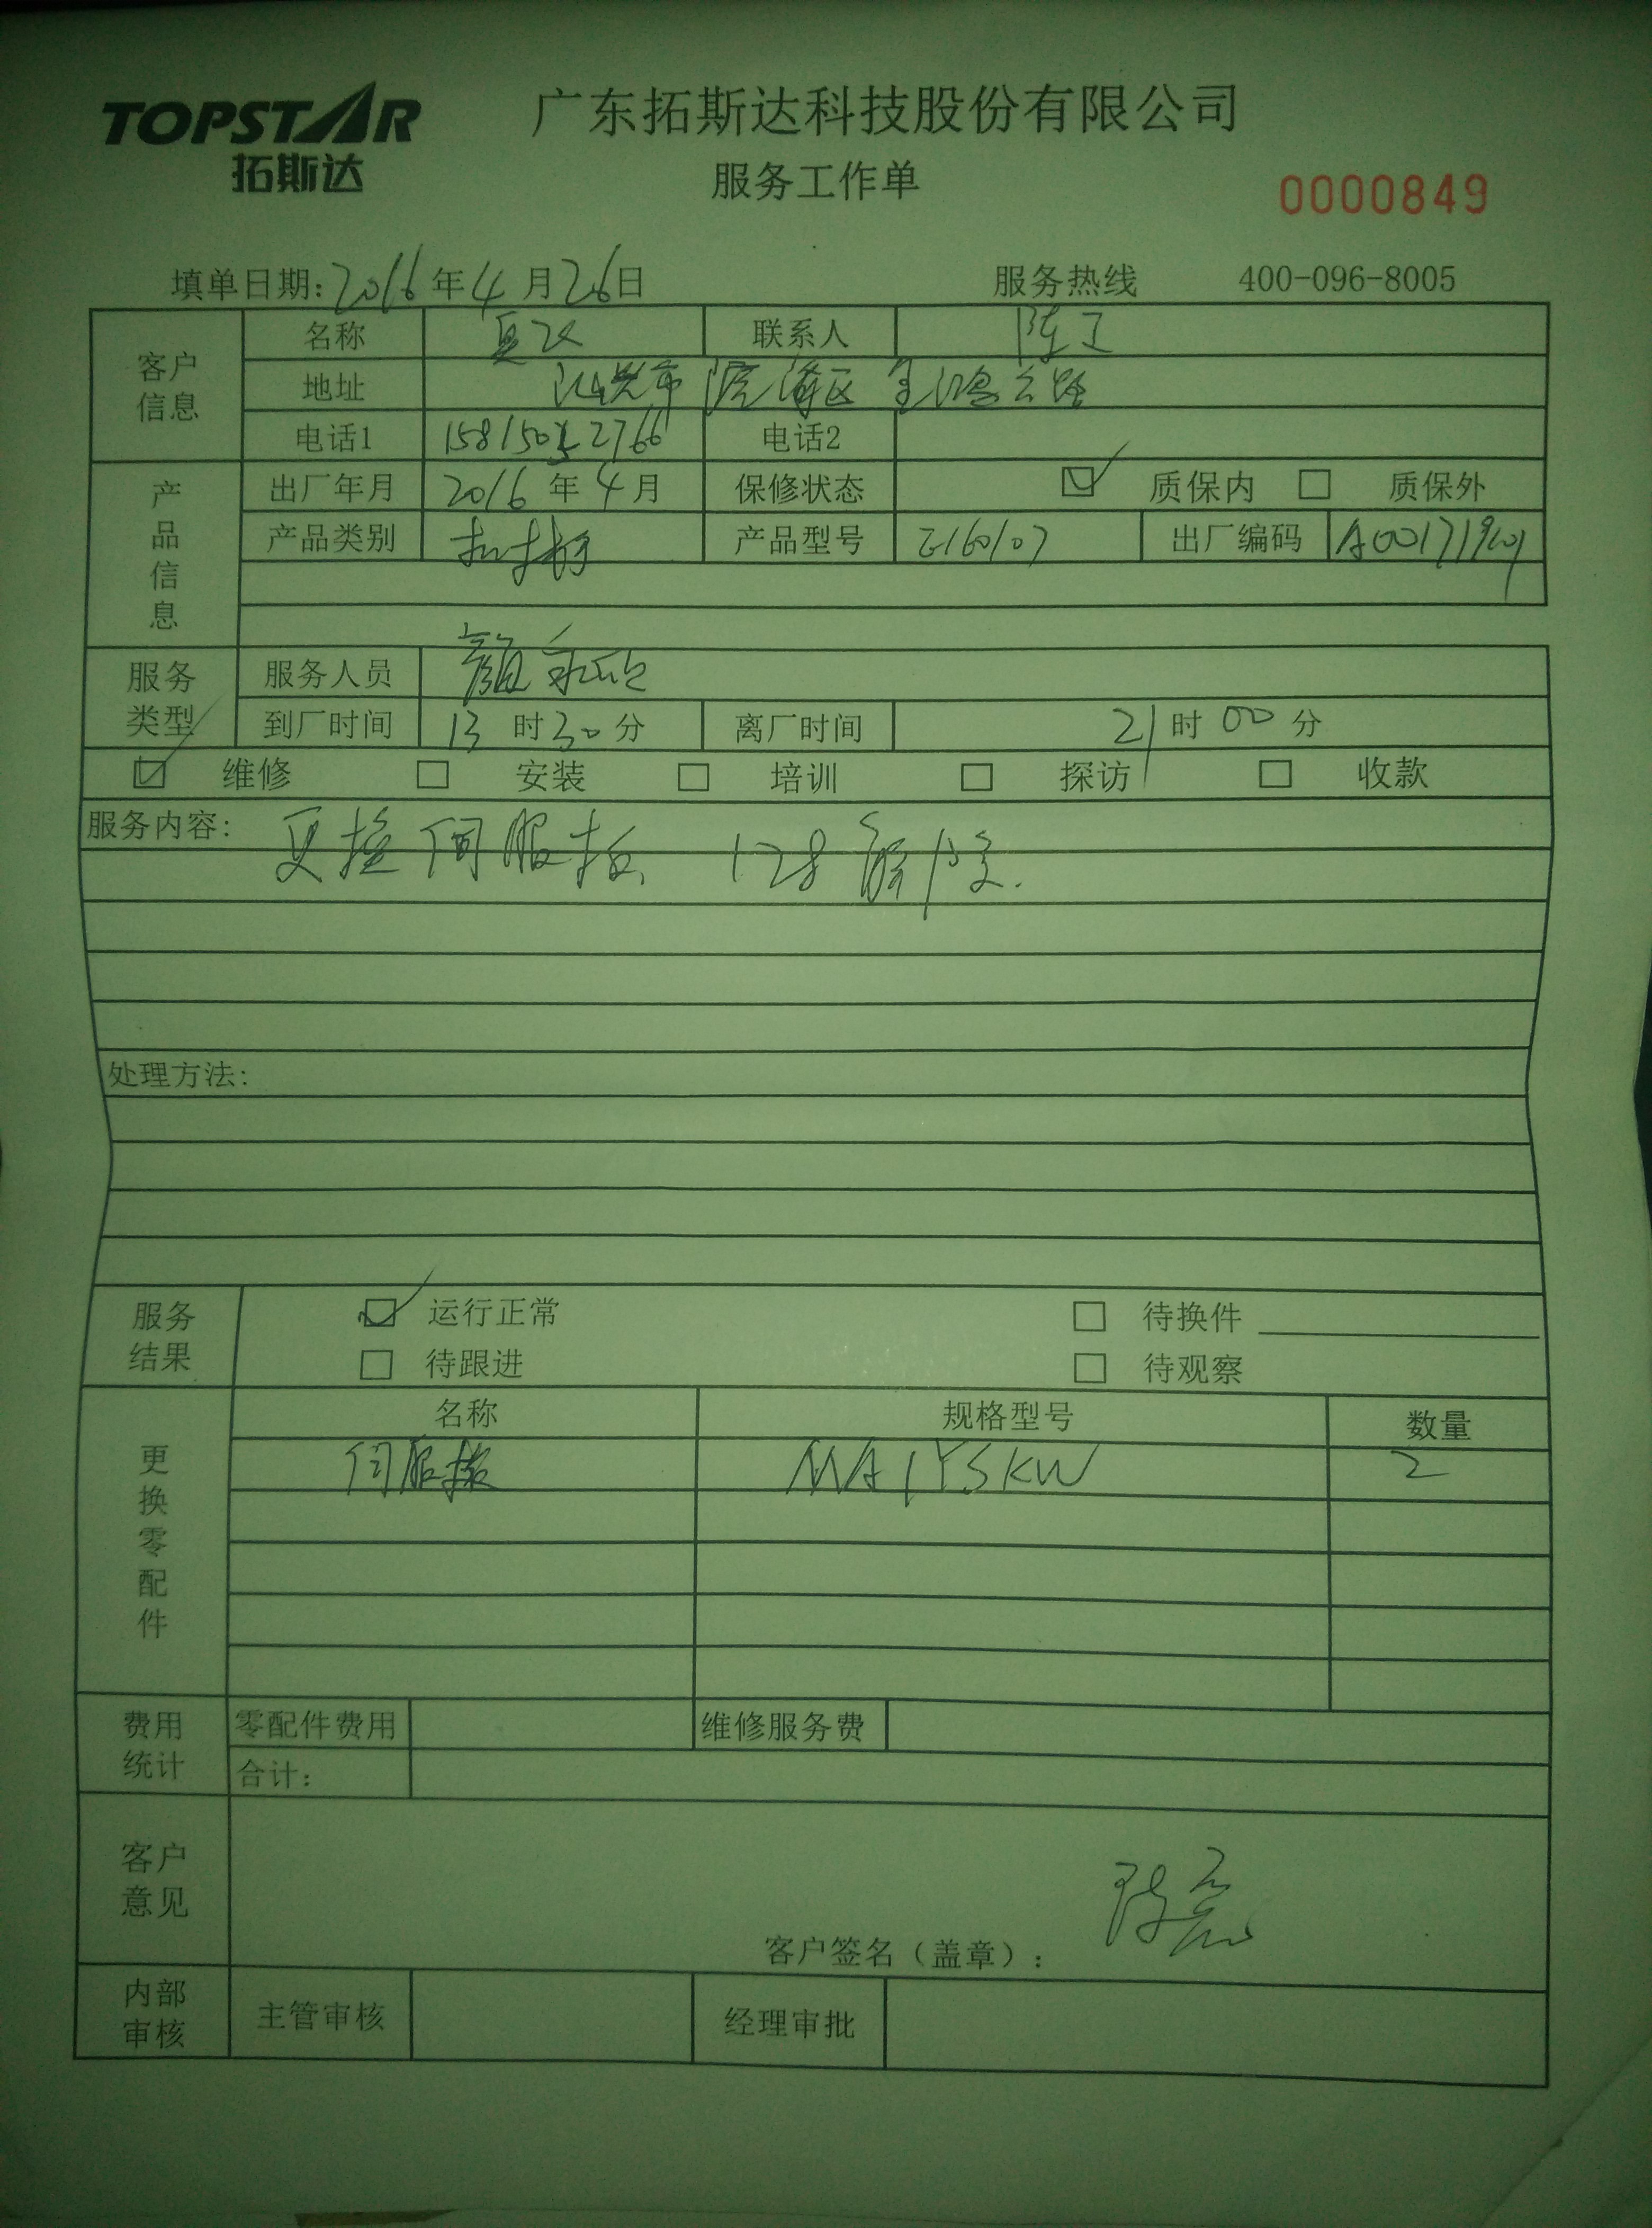 TOPSTAR
拓斯达
广东拓斯达科技股份有限公司
服务工作单
0000849
填单日期:2016年4月26日 服务热线 400-096-8005
客户信息
名称 联系人 陈工
地址
电话1 电话2
产品信息
出厂年月 2016年4月 保修状态 质保内 质保外
产品类别 产品型号 出厂编码
服务类型
服务人员 颜
到厂时间 13时30分 离厂时间 21时00分
维修 安装 培训 探访 收款
服务内容: 更换伺服板 128解除.
处理方法:
服务结果
运行正常 待换件
待跟进 待观察
更换零配件
名称 规格型号 数量
伺服板 2
费用统计
零配件费用 维修服务费
合计:
客户意见
客户签名（盖章）: 陈亮
内部审核
主管审核 经理审批